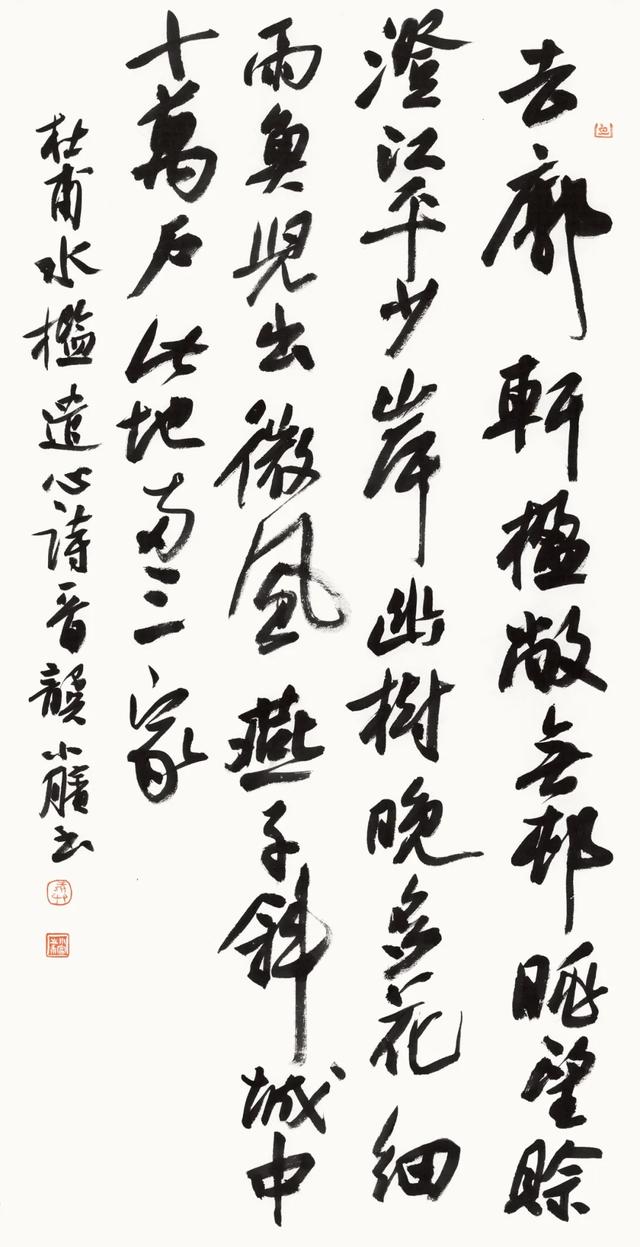 去廓軒楹敞無邨眺望賒
澄江平少岸幽樹晚多花細
雨魚兒出微風燕子斜城中
十萬戶此地兩三家
杜甫水檻遣心詩晉龔小書